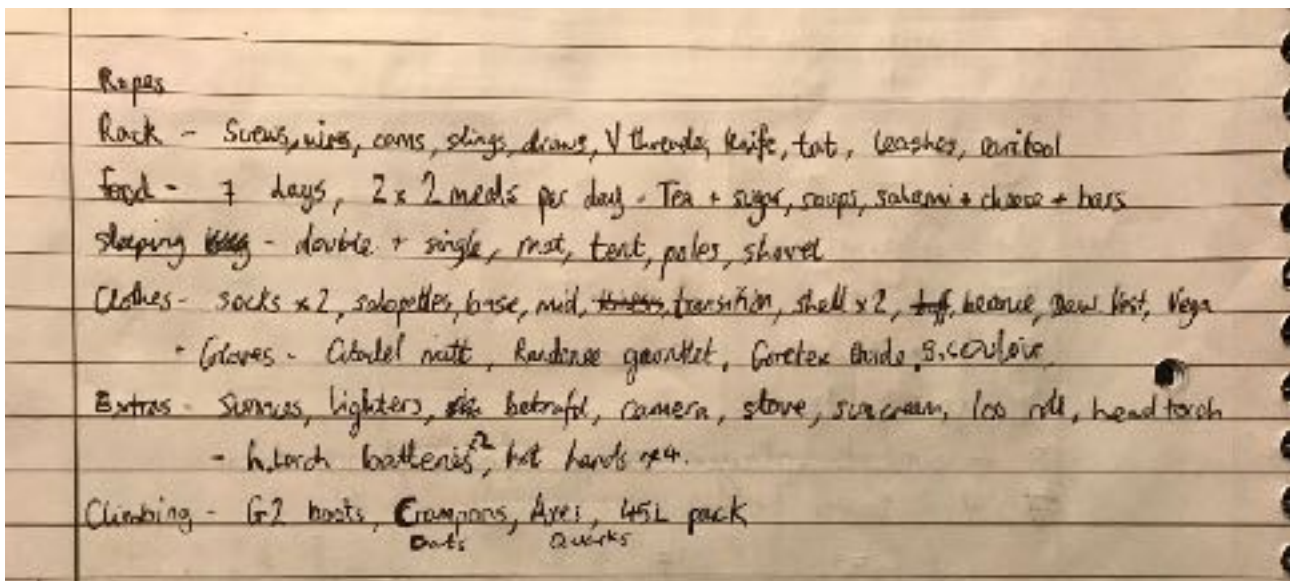 Ropes
Rack - Screws, wires, cams, slings, draws, V threads, knife, tat, leashes, multitool
Food - 7 days, 2 x 2 meals per day - Tea + sugar, soups, salami + cheese + bars
Sleeping - double + single, mat, tent, poles, shovel
Clothes - socks x2, salopettes, base, mid, transition, shell x2, beanie, Vest, Vega
- Gloves - Citadel mitt, gauntlet, Goretex
Extras - Sunnies, lighters, camera, stove, suncream, loo roll, headtorch
- h.torch batteries x2, hot hands x4.
Climbing - G2 boots, Crampons, Axes, 45L pack
Darts Quarks